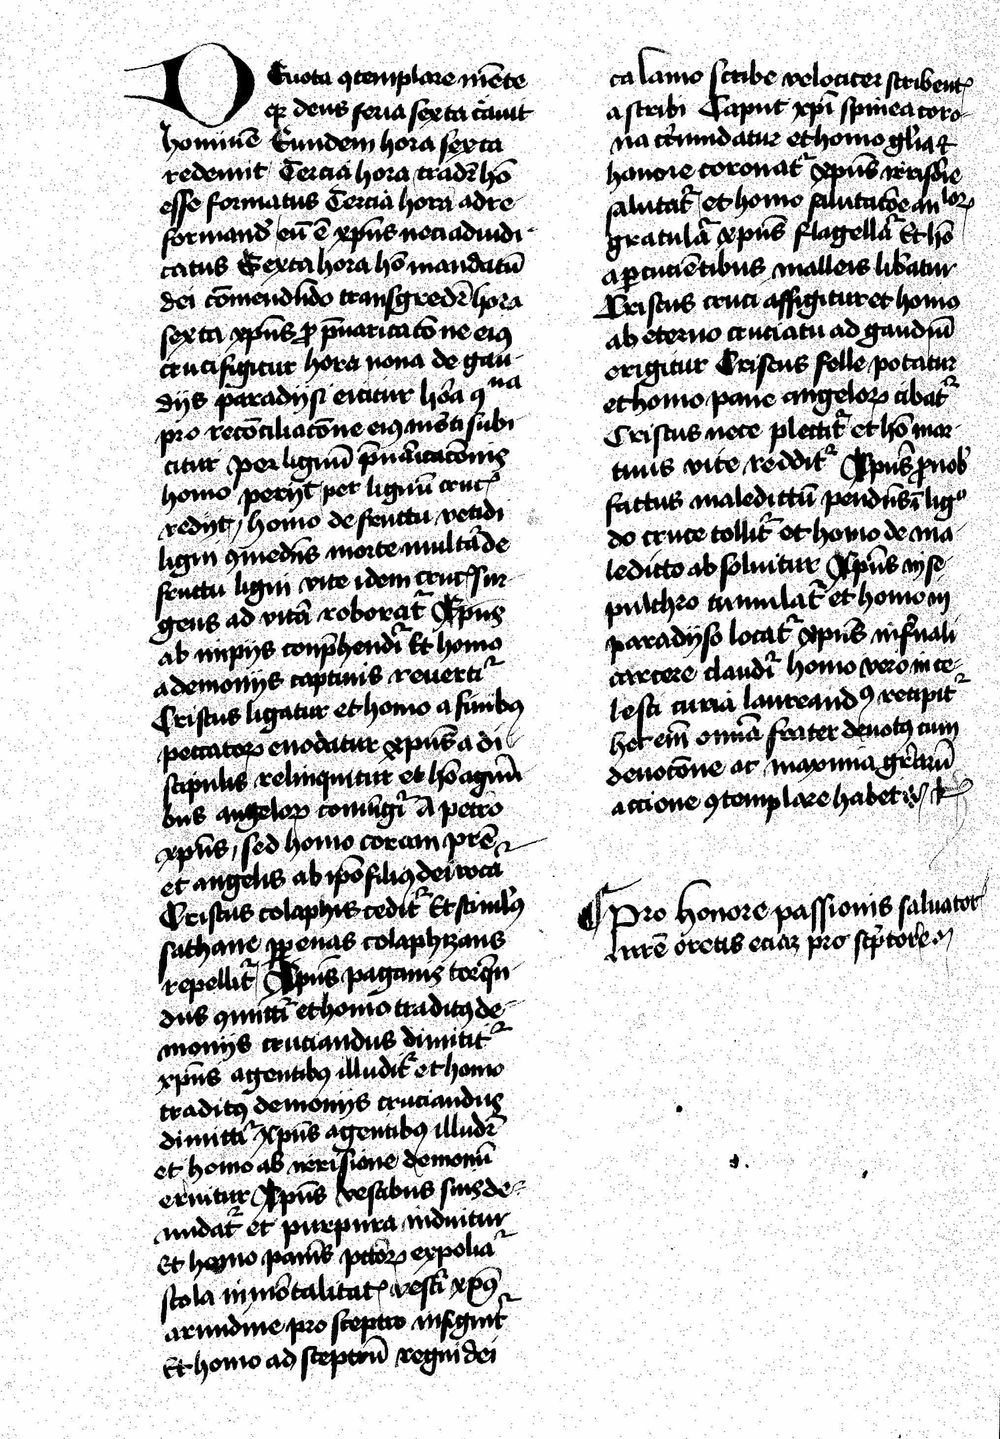 Deuota ꝯtemplare mēte
qꝛ deus feria sexta c̄auit
hominē Eundem hora sexta
redemit Tercia hora tradr̄ hō
esse formatus Tercia hora ad re
formand̄ eū ē xp̄us neci adiudi
catus Sexta hora hō mandatū
dei cōmendādo transgredr̄ hora
sexta xp̄us ꝓ p̄uaricatōne eiꝯ
crucifigitur hora nona de gau
dijs paradijsi eicitur hōa ꝯna
pro recōciliatōne eiꝯ
citur Per lignū p̄uaricatōnis
homo perijt per lignū cruc
redijt, homo de fructu vetidi
ligni ꝯmedēs morte multā̄ de
fructu ligni vite idem cruc sur
gens ad vitā roborat̄ Xp̄us
ab impijs conp̄hendr̄ Et homo
a demonijs captiuis reuertr̄
Cristus ligatur et homo a funibꝯ
peccatoꝝ enodatur xp̄us a di
scipulis relinquitur et hō agmī
bus angeloꝝ coniūgr̄ A petro
xp̄us, sed homo coram prē
et angelis ab ip̄o filiꝯ dei vocā
Cristus colaphis cedit̄ Et stimlꝯ
sathane ꝑ penas colaphizans
repellit̄ Xp̄us paganis torq̄n
dus ꝯmittr̄ et homo traditꝯ de
monijs cruciandus dimitit̄
xp̄us agentibꝯ illudit̄ et homo
traditꝯ demonijs cruciandus
dimittr̄ Xp̄us agentibꝯ illudr̄
et homo ab irrisione demonū
eruitur Xp̄us vestibus suis de
nudat̄ et purpura induitur
Et homo panis pctōꝝ expoliā
stola inmōtalitat vestr̄ xp̄ꝯ
arundine pro sceptro insignit̄
Et homo ad sceptrū regni dei
calamo scribe velociter scribent
ascribi Caput xp̄i spinea coro
na et homo gl̄ia et
honore coronat̄ Xp̄us irrisōie
salutat̄ et homo salutatōe angloꝝ
gratulā xp̄us flagellā Et hō
a ꝑcucientibus malleis lib̄atur
Cristus cruci affigitur et homo
ab eterno cruciatu ad gaudiū
erigitur Cristus felle potatur
et homo pane angeloꝝ cibat̄
Cristus nece plectit̄ et hō mor
tuus vite reddit̄ Xp̄us ꝓ nob
factus maledictū pendēs ī ligo
do cruce tollit̄ et homo de ma
ledicto absoluitur Xp̄us in se
pulchro tumulat̄ et homo in
paradijso locat̄ xp̄us inf̄nali
carcere claudr̄ homo vero in ce
lesti curia laureandꝯ recipit̄
hec em̄ omīa frater deuotꝯ cum
deuotōne ac maxima gr̄arū
accione ꝯtemplare habet
Pro honore passionis saluator
nr̄e oretis eciaꝫ pro sc̄ptore